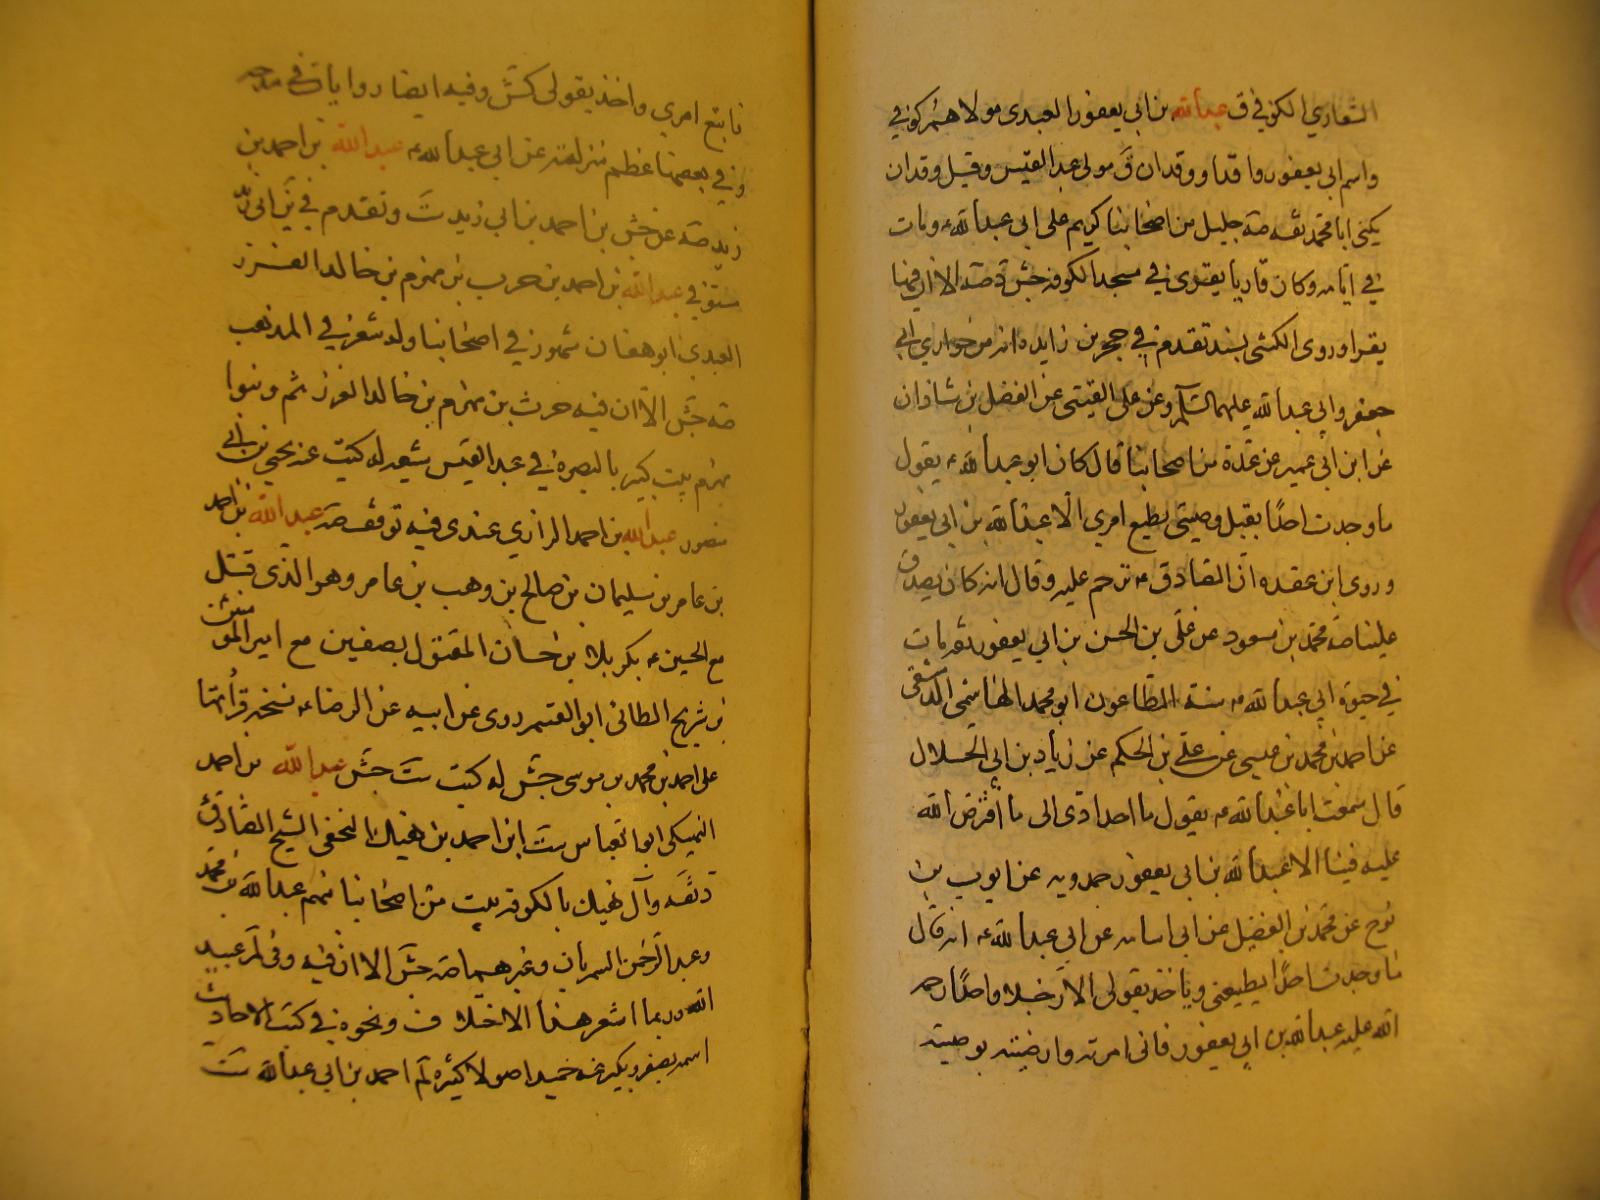 الكوفي ق عبد الله بن ابي يعفور العبدي مولاهم كوفي
واسم ابي يعفور واقد او وقدان ق مولى عبد القيس وقيل وقدان
يكنى ابا محمد ثقه صه جليل من اصحابنا كريم على ابي عبد الله ع ومات
في ايامه وكان قاريا يقرئ في مسجد الكوفه جش ق صه الا ان فيها
يقرا وروى الكشي بسند تقدم في حجر بن زايده انه من حواري ابي
جعفر وابي عبد الله عليهما السلام وعن علي القتيبي عن الفضل بن شاذان
عن ابن ابي عمير عن عدة من اصحابنا قال كان ابو عبد الله ع يقول
ما وجدت احدًا يقبل وصيتي يطيع امري الا عبد الله بن ابي يعفور
وروى ابن عقده ان الصادق ع ترحم عليه وقال انه كان يصدق
علينا صه محمد بن مسعود عن علي بن الحسن بن ابي يعفور ثقه مات
في حيوة ابي عبد الله ع سنة الطاعون ابو محمد الدمشقي
عن احمد بن محمد بن عيسى عن علي بن الحكم عن زياد بن ابي الحلال
قال سمعت ابا عبد الله ع يقول ما احد ادى الى ما افترض الله
عليه فينا الا عبد الله بن ابي يعفور حمدويه عن ايوب بن
نوح عن محمد بن الفضيل عن ابي اسامه عن ابي عبد الله ع انه قال
ما وجدت احدًا يطيعني وياخذ بقولي الا رجلا واحدًا رحمه
الله عليه عبد الله بن ابي يعفور فاني امرته واوصيته بوصيته
فاتبع امري واخذ بقولي كش وفيه ايضا روايات في مدحه
وفي بعضها عظم منزلته عن ابي عبد الله ع عبد الله بن احمد بن
زيد صه عن جش بن احمد بن ابي زيد ست وتقدم في بن ابي زيد
مستوفي عبد الله بن احمد بن حرب بن مهزم بن خالد الفزر
العبدي ابو هفان مشهور في اصحابنا وله شعر في المذهب
صه جش الا ان فيه حرث بن مهزم بن خالد الفزر ثم وبنوا
مهزم بيت كبير بالبصره في عبد القيس شعر له كتب عنه يحيى بن ابي
منصور عبد الله بن احمد الرازي عندي فيه توقف صه عبد الله بن احمد
بن عامر بن سليمان بن صالح بن وهب بن عامر وهو الذي قتل
مع الحسين ع بكربلا بن حسان المقتول بصفين مع امير المؤمنين
بن شريح الطائي ابو القسم روى عن ابيه عن الرضا ع نسخه قرأتها
على احمد بن محمد بن موسى جش له كتب ست جش عبد الله بن احمد
النهيكي ابو العباس ست ابن احمد بن نهيك النخعي الشيخ الصادق
ثقه وآل نهيك بالكوفه بيت من اصحابنا منهم عبد الله بن محمد
وعبد الرحمن السمريان وغيرهما صه جش الا ان فيه وفي عبيد
الله وربما اشعر هذا الاختلاف ونحوه في كتب الاحاديث
احمد بن ابي عبد الله ست